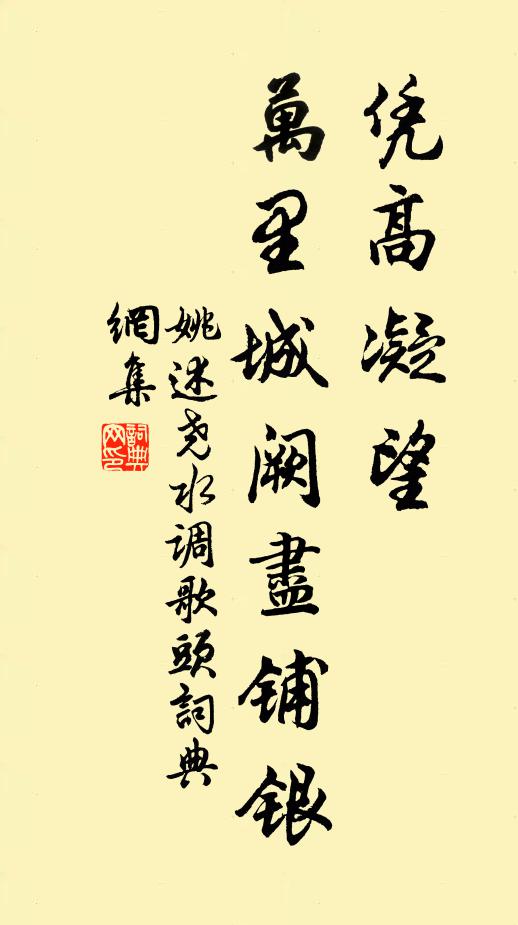 凭高凝望
萬里城阙盡铺银
姚述尧水调歌頭詞典
網集
詞典网印